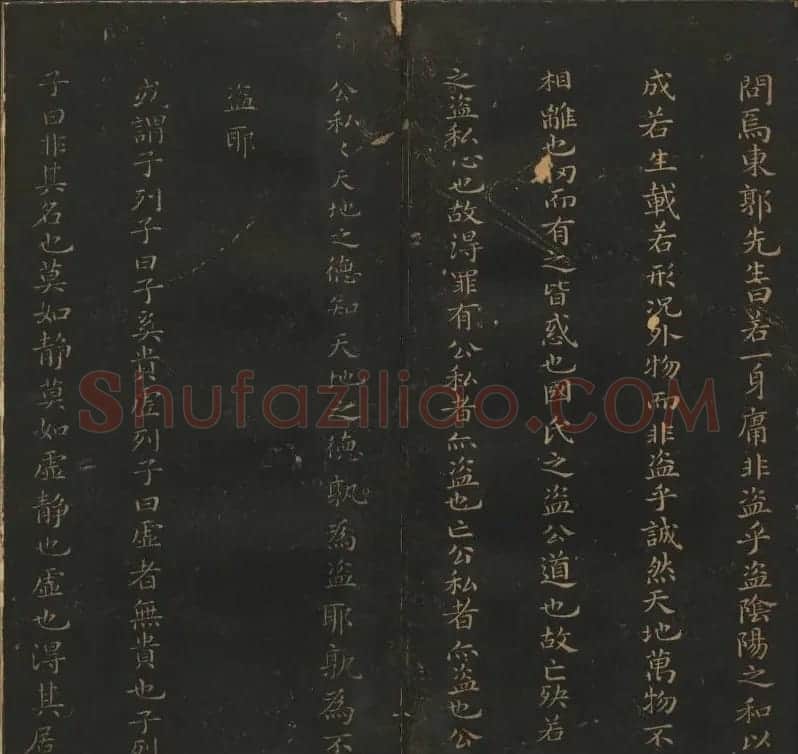 問焉東郭先生曰若一身庸非盗乎盗陰陽之和以
成若生載若形况外物而非盗乎誠然天地萬物不
相離也仞而有之皆惑也國氏之盗公道也故亡殃若
之盗私心也故得罪有公私者亦盗也亡公私者亦盗也公
公私〻天地之德知天地之德孰為盗耶孰為不
盗耶
或謂子列子曰子奚貴虛列子曰虛者無貴也子列
子曰非其名也莫如静莫如虛静也虛也得其居
Shufaziliao.COM